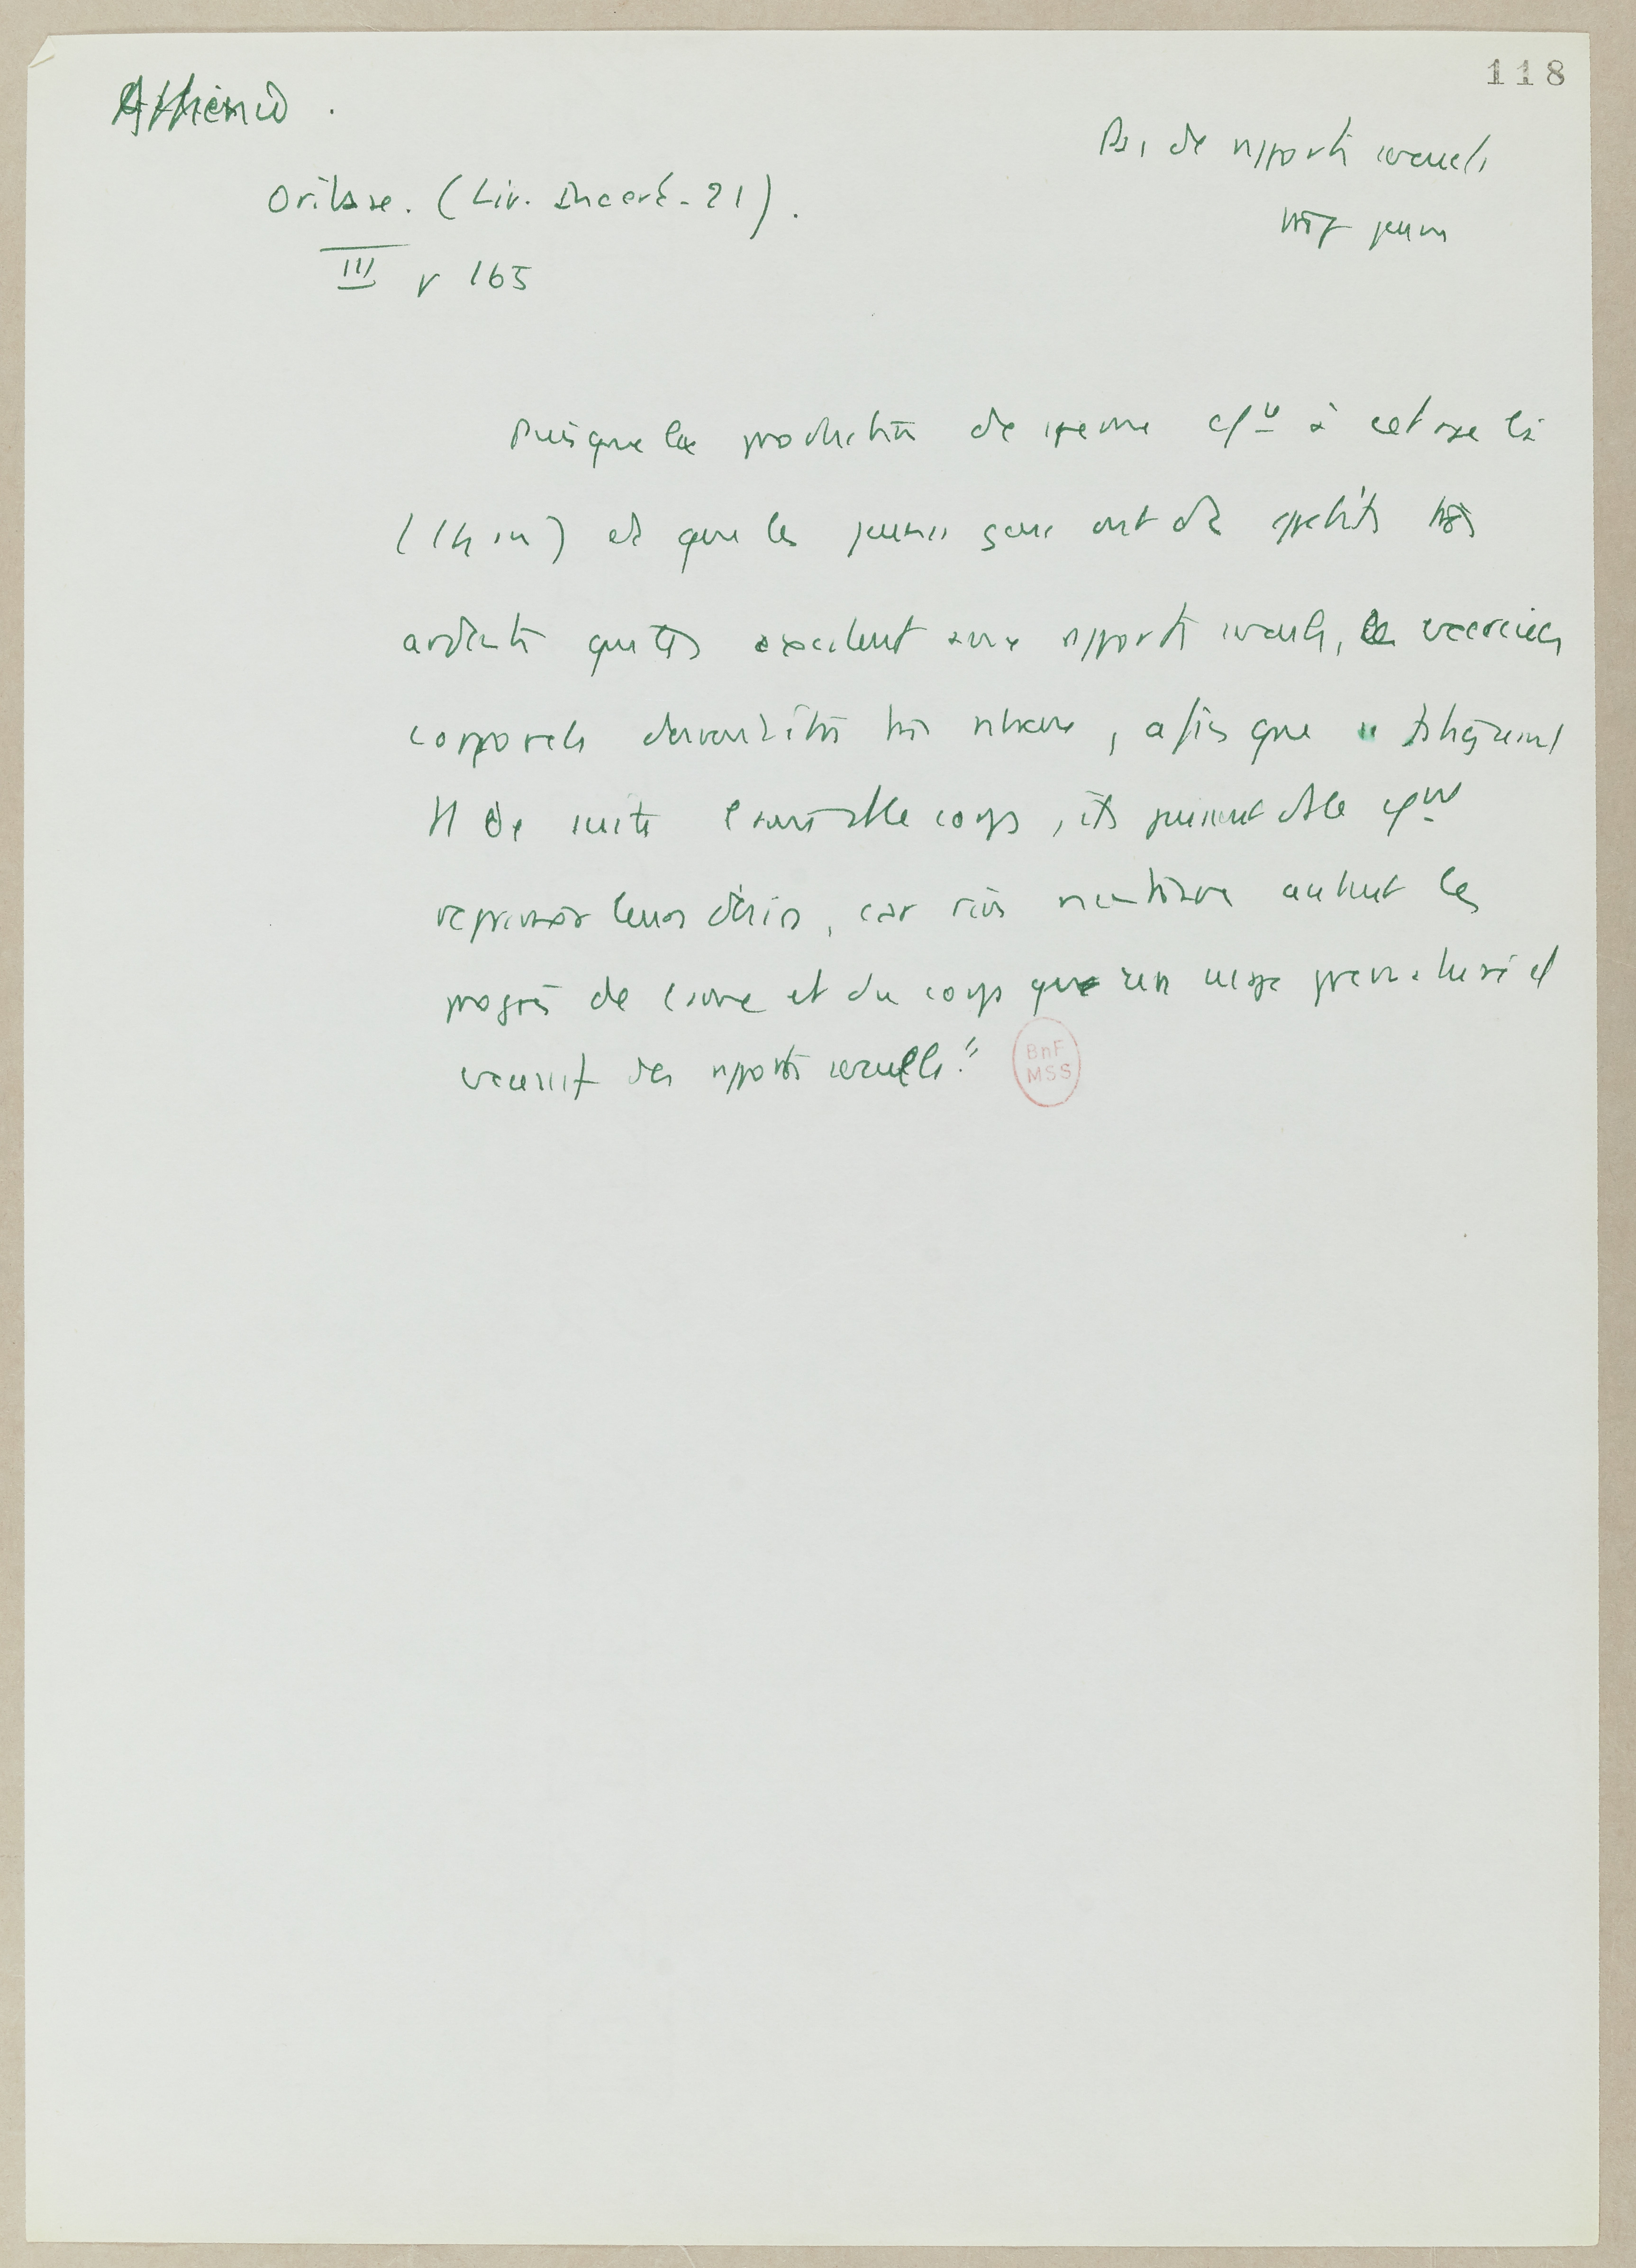 118
Athénée.
Pas de rapports sexuels
trop jeune
Oribase. (Liv. Incert. 21).
III p 165
Puisque la production de sperme à cet age là
(14 ans) et que les jeunes gens ont des appétits très
ardents qui les excitent aux rapports sexuels, les exercices
corporels devront être très nombreux, afin que fatiguant
tt de suite l'ame et le corps, ils puissent dès le
reprimer leurs désirs, car rien n'entrave autant les
progrès de l'ame et du corps que un usage prématuré et
excessif des rapports sexuels."
BnF
MSS